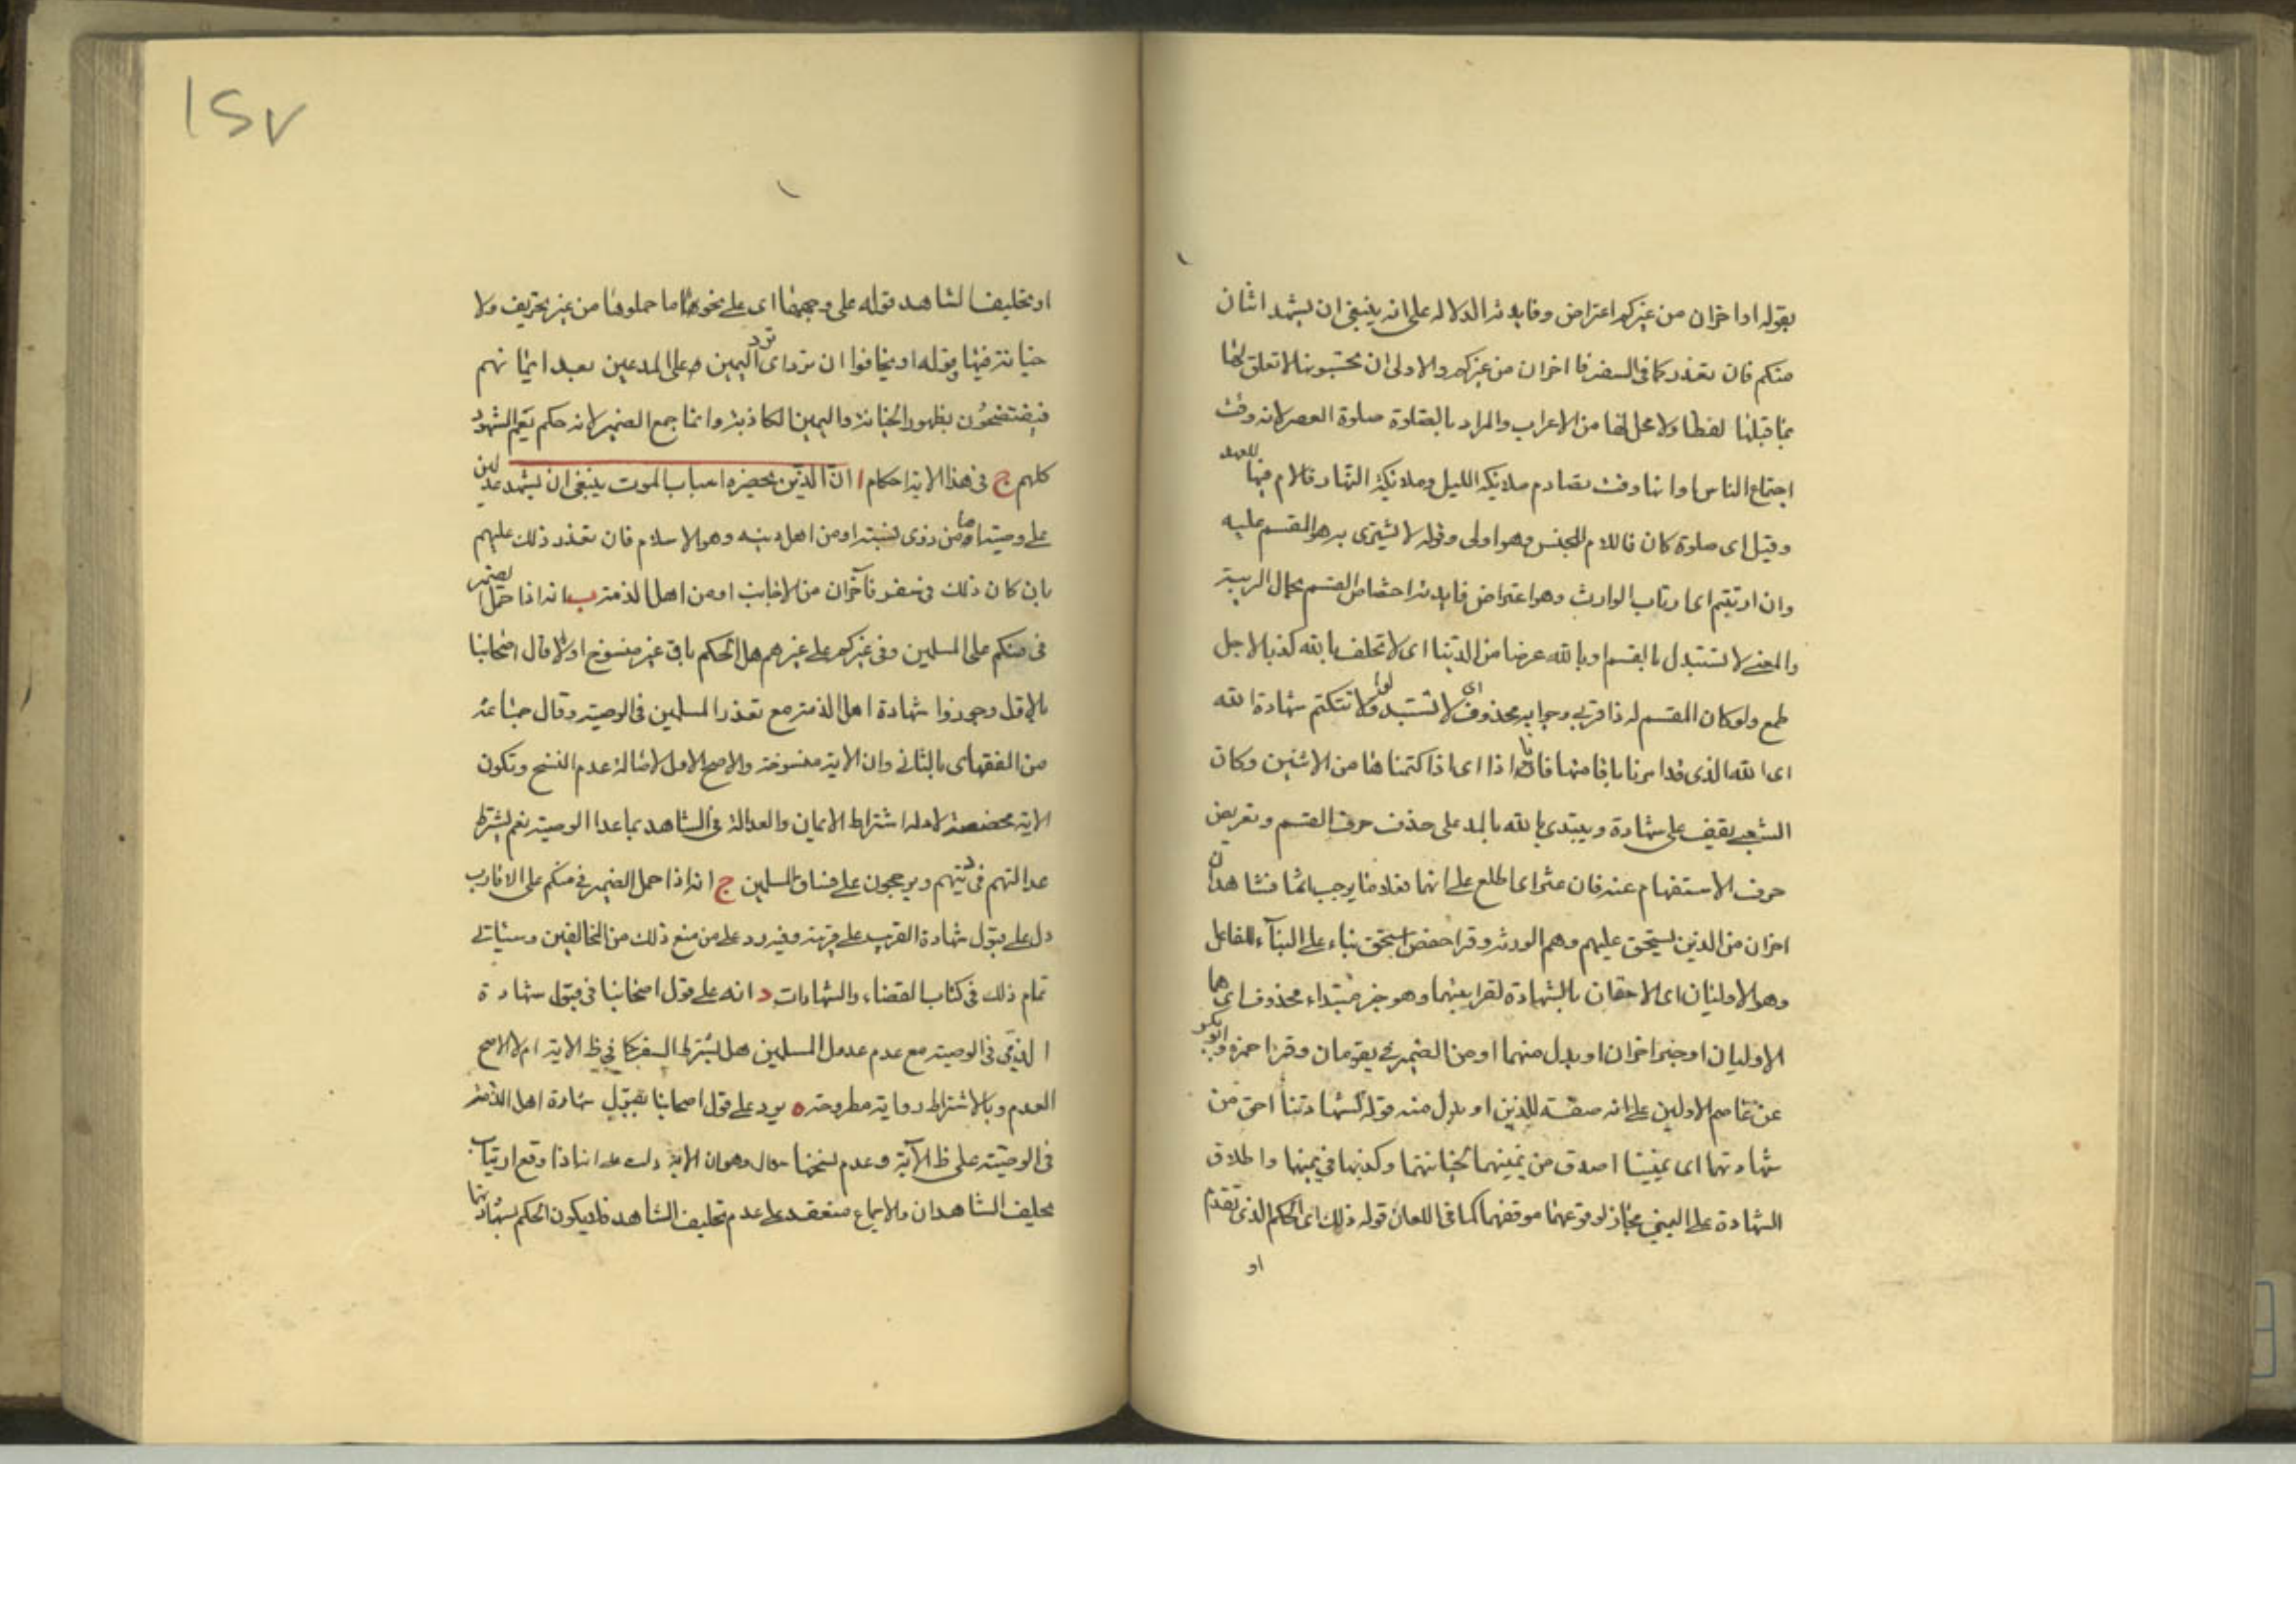 بقوله او اخران من غيركم اعتراض وفايدته الدلاله على انه ينبغى ان يشهد اثنان
منكم فان تعذر كما فى السفر فاخران من غيركم والاولى ان تحبسونها لا تعلق لها
بما قبلها لفظا ولا محل لها من الاعراب والمراد بالصلوة صلوة العصر لانه وقت
اجتماع الناس او انها وقت تصادم ملائكة الليل وملائكة النهار فاللام فيها للعهد
وقيل اى صلوة كان فاللام للجنس وهو اولى وقوله لا نشترى به هو المقسم عليه
وان ارتبتم اى ارتاب الوارث وهو اعتراض فايدته اختصاص القسم بحال الريبة
والمعنى لا نستبدل بالقسم او بالله عرضا من الدنيا اى لا نحلف بالله كذبا لاجل
طمع ولو كان المقسم له ذا قربى وجوابه محذوف اى لا نستبدلوا ولا نكتم شهادة الله
اى الله الذى قد امرنا باقامتها فانا اذا اى اذا كتمناها من الاثمين وكان
الشعبى يقف على شهادة ويبتدى بالله بالمد على حذف حرف القسم وتعويض
حرف الاستفهام عنه فان عثر اى اطلع على انهما فعلا ما يوجب اثما فشاهدان
اخران من الذين يستحق عليهم وهم الورثه وقرا حفص استحق بناء على البنآء للفاعل
وهو الاوليان اى الاحقان بالشهادة لقرابتهما وهو خبر مبتداء محذوف اى هما
الاوليان او خبر اخران او بدل منهما او من الضمير فى يقومان وقرا حمزه وابو بكر
عن عاصم الاولين على انه صفة للذين او بدل منه قوله لشهادتنا احق من
شهادتهما اى يميننا اصدق من يمينهما لخيانتهما وكذبهما فى يمينهما واطلاق
الشهادة على اليمين مجاز لوقوعها موقفهما كما فى اللعان قوله ذلك اى الحكم الذى تقدم
او
١٢٧
او تحليف الشاهد قوله على وجهها اى على نحو ما حملوها من غير تحريف ولا
خيانة فيها قوله او يخافوا ان ترد اى ترد اليمين على المدعين بعد ايمانهم
فيفتضحون بظهور الخيانة واليمين الكاذبة وانما جمع الضمير لانه حكم يعم الشهود
كلهم ج فى هذا الاية احكام ا ان الذين يحضره اسباب الموت ينبغى ان يشهد عدلين
على وصيته وهما من ذوى نسبته او من اهل دينه وهو الاسلام فان تعذر ذلك عليهم
بان كان ذلك فى سفر فآخران من الاجانب او من اهل الذمة ب انه اذا حمل الضمير
فى منكم على المسلمين وفى غيركم على غيرهم هل الحكم باق غير منسوخ او لا قال اصحابنا
بالاول وجوزوا شهادة اهل الذمة مع تعذر المسلمين فى الوصيه وقال جماعة
من الفقهاى بالثانى وان الاية منسوخة والاصح الاول لاصالة عدم النسخ وتكون
الاية مخصصة لادلة اشتراط الايمان والعدالة فى الشاهد بما عدا الوصيه نعم يشترط
عدالتهم فى دينهم ويرجحون على فساق المسلمين ج انه اذا حمل الضمير فى منكم على الاقارب
دل على قبول شهادة القريب على قريبه وفيه رد على من منع ذلك من المخالفين وسياتى
تمام ذلك فى كتاب القضاء والشهادات د انه على قول اصحابنا فى قبول شهادة
الذمى فى الوصيه مع عدم عدول المسلمين هل يشترط السفر كما فى ظ الاية ام لا الاصح
العدم وبالاشتراط رواية مطروحة ه يرد على قول اصحابنا بقبول شهادة اهل الذمة
فى الوصيه على ظ الآية وعدم نسخها سوال وهو ان الاية دلت على انه اذا وقع ارتياب
يحلف الشاهدان والاجماع منعقد على عدم تحليف الشاهد فلا يكون الحكم بشهادتهما